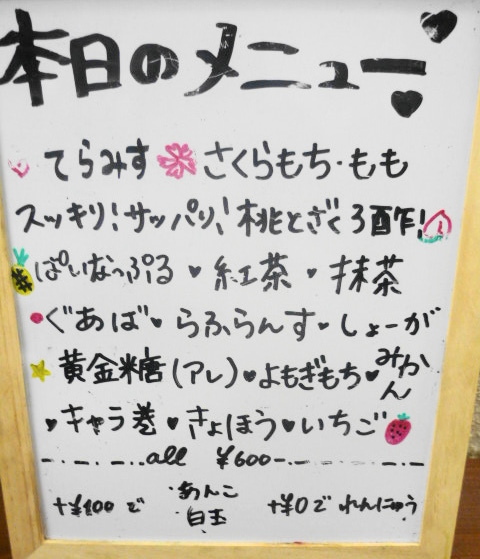 本日のメニュー
てらみす さくらもち・もも
スッキリ!サッパリ!桃とざくろ酢!
ぱいなっぷる ♥ 紅茶 ♥ 抹茶
ぐあば♥らふらんす♥しょーが
黄金糖(アレ)♥よもぎもち♥みかん
♥キャラ巻♥きょほう♥いちご
all ¥600
+¥100で あんこ 白玉 +¥0で れんにゅう